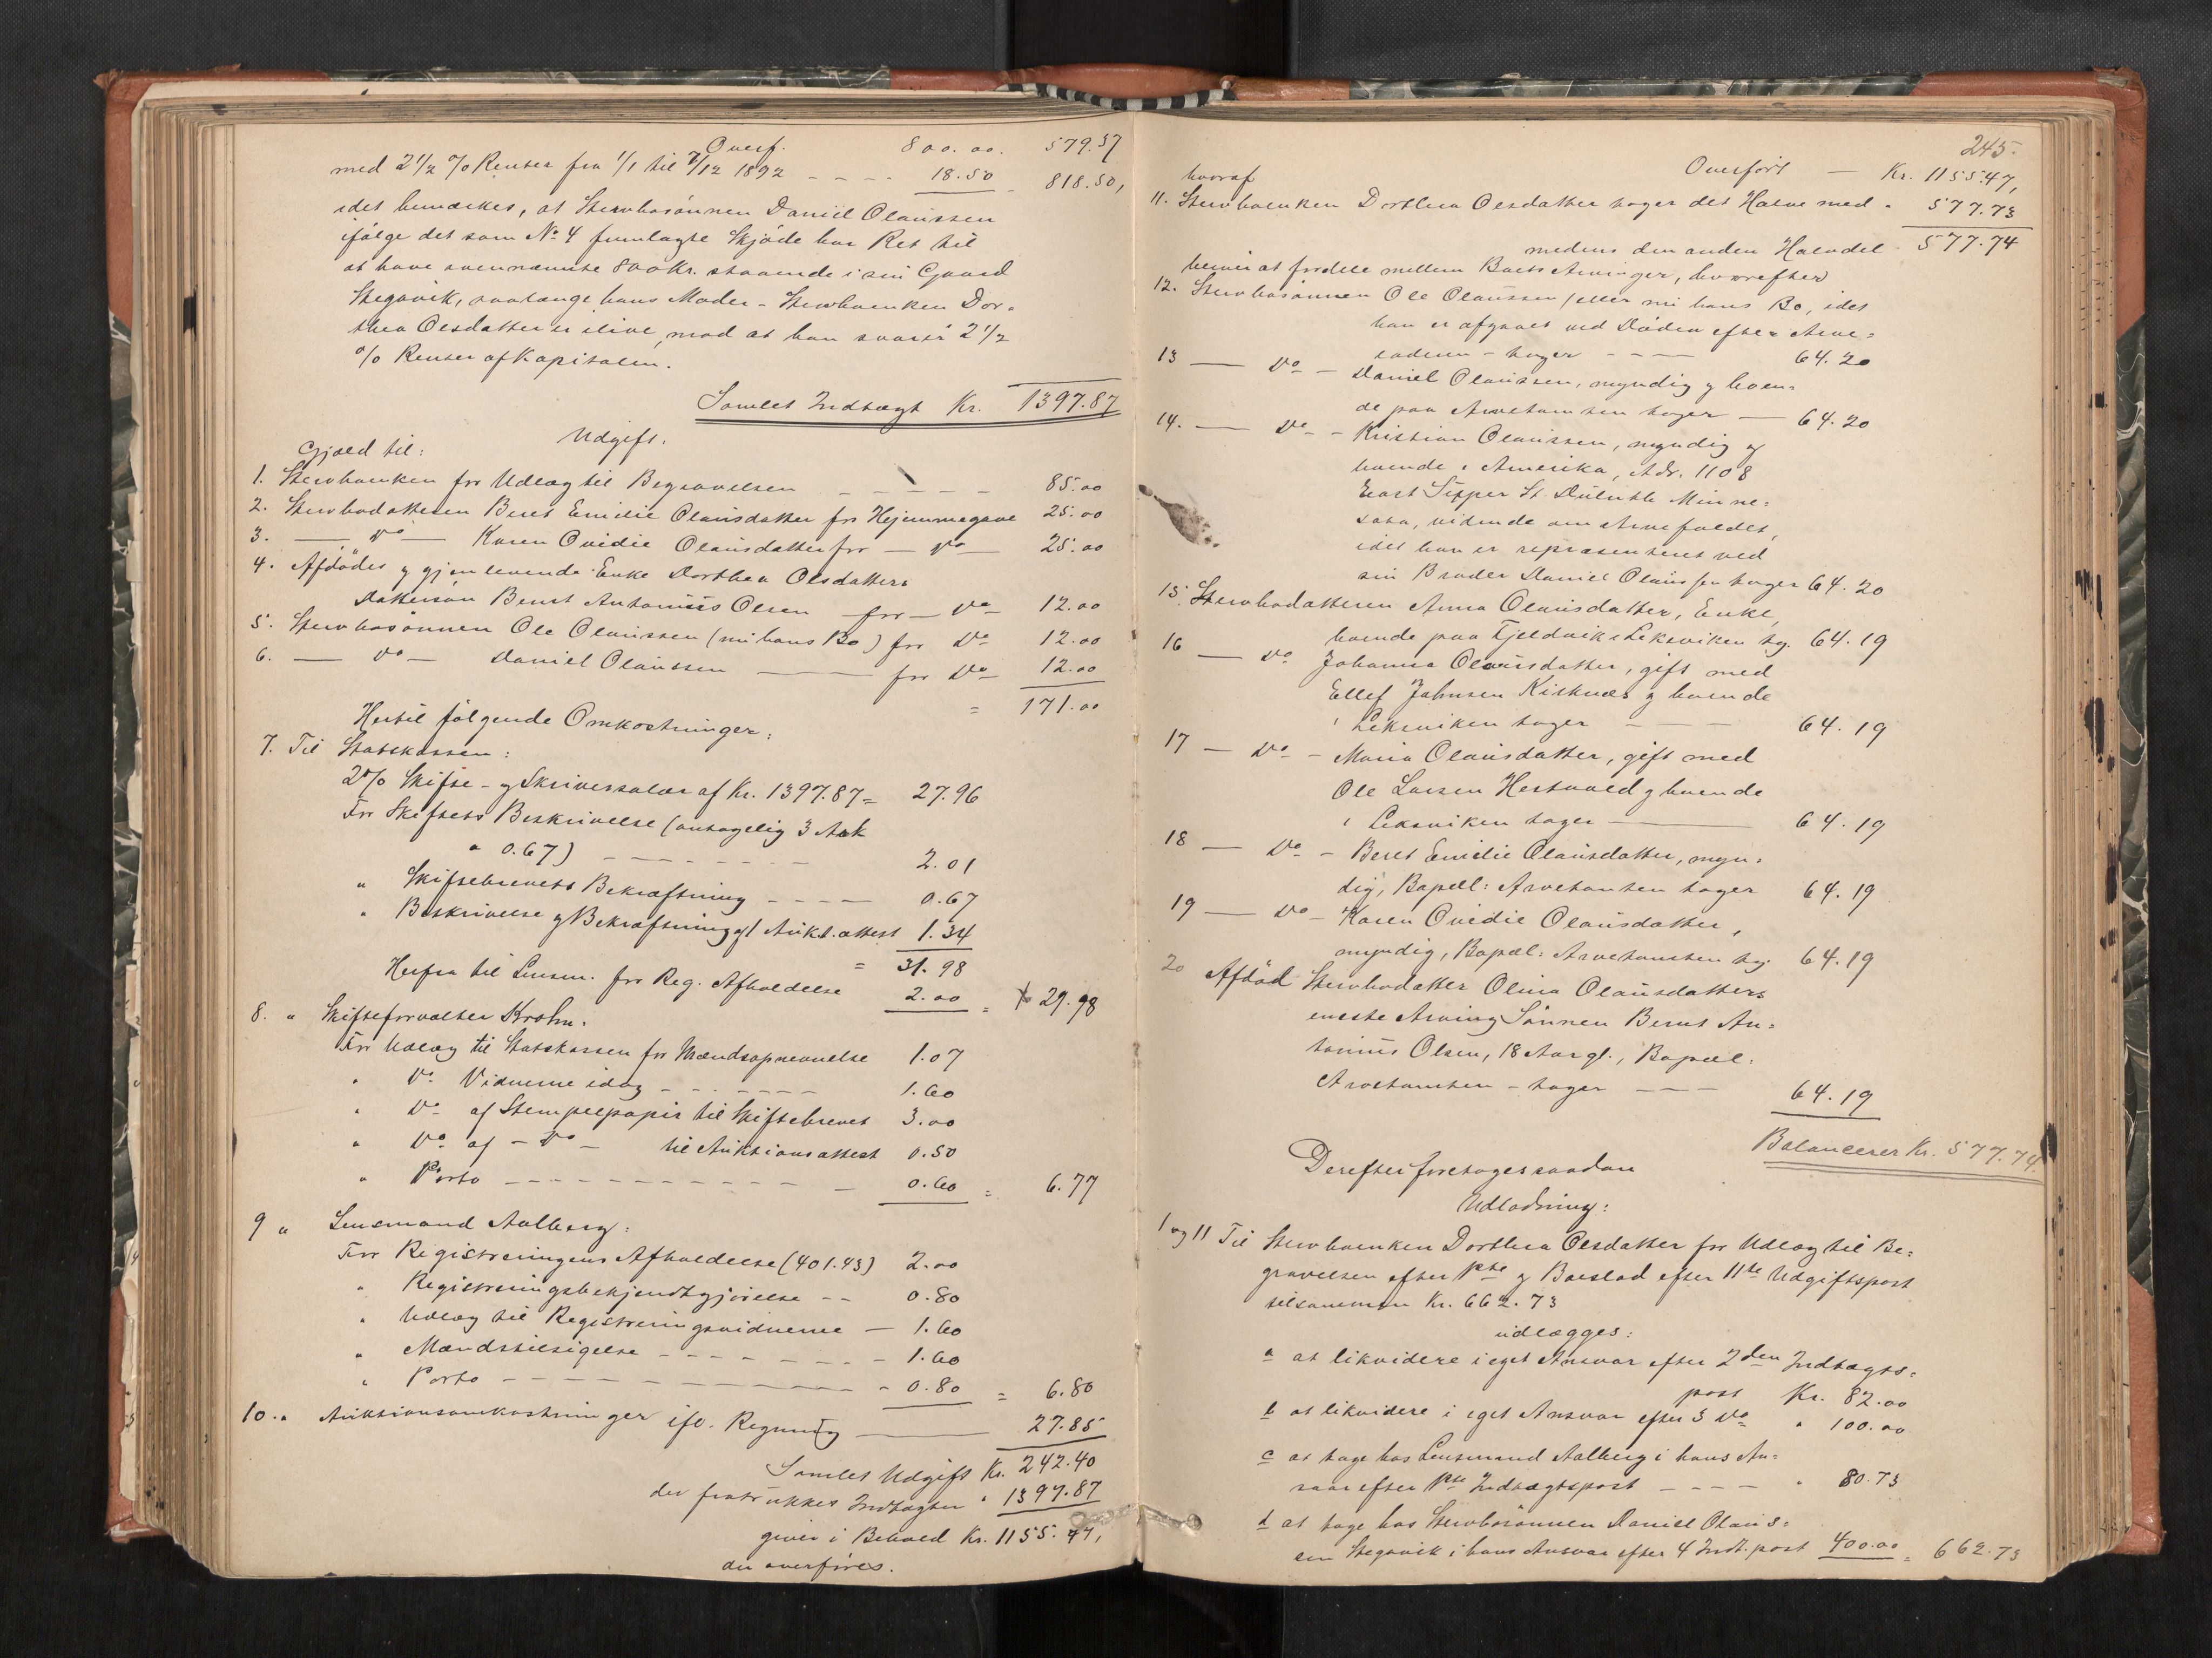 Overf. 800.00. 579.37
med 2 1/2 % Renter fra 1/1 til 7/12 1892 - - - - 18.50 818.50,
idet bemærkes, at Stervbosønnen Daniel Olaussen
ifølge det som No 4 fremlagte Skjøde har Ret til
at have ovennævnte 800 Kr. staaende i sin Gaard
Stegavik, saalænge hans Moder - Stervboenken Dor-
thea Olsdatter er ilive, mod at han svarer 2 1/2
% Renter af Kapitalen.
Samlet Indtægt Kr. 1397.87
Udgift.
Gjæld til:
1. Stervboenken for Udlæg til Begravelsen - - - - - 85.00
2. Stervbodatteren Beret Emilie Olausdatter for Hjemmegave 25.00
3. — Do — Karen Ovidie Olausdatter for — Do — 25.00
4. Afdødes og gjenlevende Enke Dorthea Olsdatters
Dattersøn Bernt Antonius Olsen — for — Do — 12.00
5. Stervbosønnen Ole Olaussen (nu hans Bo) for Do 12.00
6. — Do — Daniel Olaussen — for Do 12.00
= 171.00
Hertil følgende Omkostninger:
7. Til Statskassen:
2% Skifte- og Skriversalær af Kr. 1397.87 = 27.96
For Skiftets Beskrivelse (antagelig 3 Ark
a 0.67) - - - - - - - 2.01
" Skiftebrevets Bekræftning - - - - 0.67
" Beskrivelse og Bekræftning af Aukt.attest 1.34
= 31.98
Herfra til Lensm. for Reg. Afholdelse 2.00 = 29.98
8. " Skifteforvalter Krohn.
For Udlæg til Statskassen for Mændsopnævnelse 1.07
" Do Vidnerne idag - - - - - - 1.60
" Do af Stempelpapir til Skiftebrevet 3.00
" Do af — Do — til Auktionsattest 0.50
" Porto - - - - - - - - - - - 0.60 = 6.77
9 " Lensmand Aalberg:
For Registreringens Afholdelse (401.43) 2.00
" Registreringsbekjendtgjørelse - - 0.80
" Udlæg til Registreringsvidnerne — 1.60
" Mændstilsigelse - - - - - - - 1.60
" Porto - - - - - - - - 0.80 = 6.80
10. " Auktionsomkostninger ifl. Regning — 27.85
Samlet Udgift Kr. 242.40
der fratrukket Indtægten " 1397.87
giver i Behold Kr. 1155.47,
der overføres.
245.
Overført — Kr. 1155.47,
hvoraf
11. Stervboenken Dorthea Olsdatter tager det Halve med " 577.73
medens den anden Halvdel 577.74
bliver at fordele mellem Boets Arvinger, hvorefter
12. Stervbosønnen Ole Olaussen (eller nu hans Bo, idet
han er afgaaet ved Døden efter Arve-
laderen - tager - - - - 64.20
13 — Do — Daniel Olaussen, myndig og boen-
de paa Arvetomten tager — 64.20
14. — Do — Kristian Olaussen, myndig og
boende i Amerika, Adr. 1108
East Sipper St. Duluth Minne-
sota, vidende om Arvefaldet,
idet han er repræsenteret ved
sin Broder Daniel Olaussen tager 64.20
15. Stervbodatteren Anna Olausdatter, Enke,
boende paa Fjeldvik i Leksviken tg. 64.19
16 — Do Johanna Olausdatter, gift med
Ellef Johnsen Kirknæs og boende
i Leksviken tager - - - 64.19
17 — Do — Maria Olausdatter, gift med
Ole Larsen Hestvold og boende
i Leksviken tager — 64.19
18 — Do — Beret Emilie Olausdatter, myn-
dig, Bopæl: Arvetomten tager 64.19
19 — Do — Karen Ovidie Olausdatter,
myndig, Bopæl: Arvetomten tg. 64.19
20 Afdød Stervbodatter Olina Olausdatters
eneste Arving Sønnen Bernt An-
tonius Olsen, 18 Aar gl., Bopæl:
Arvetomten - tager - - - 64.19
Balancerer Kr. 577.74.
Derefter foretoges saadan
Udlodning:
1 og 11 Til Stervboenken Dorthea Olsdatter for Udlæg til Be-
gravelsen efter 1ste og Boeslod efter 11te Udgiftspost
tilsammen Kr. 662.73
udlægges:
a at likvidere i eget Ansvar efter 2den Indtægts-
post Kr. 82.00
b at likvidere i eget Ansvar efter 3 Do " 100.00
c at tage hos Lensmand Aalberg i hans An-
svar efter 1ste Indtægtspost - - - - " 80.73
d at tage hos Stervbosønnen Daniel Olaus-
sen Stegavik i hans Ansvar efter 4 Indt.post 400.00 = 662.73